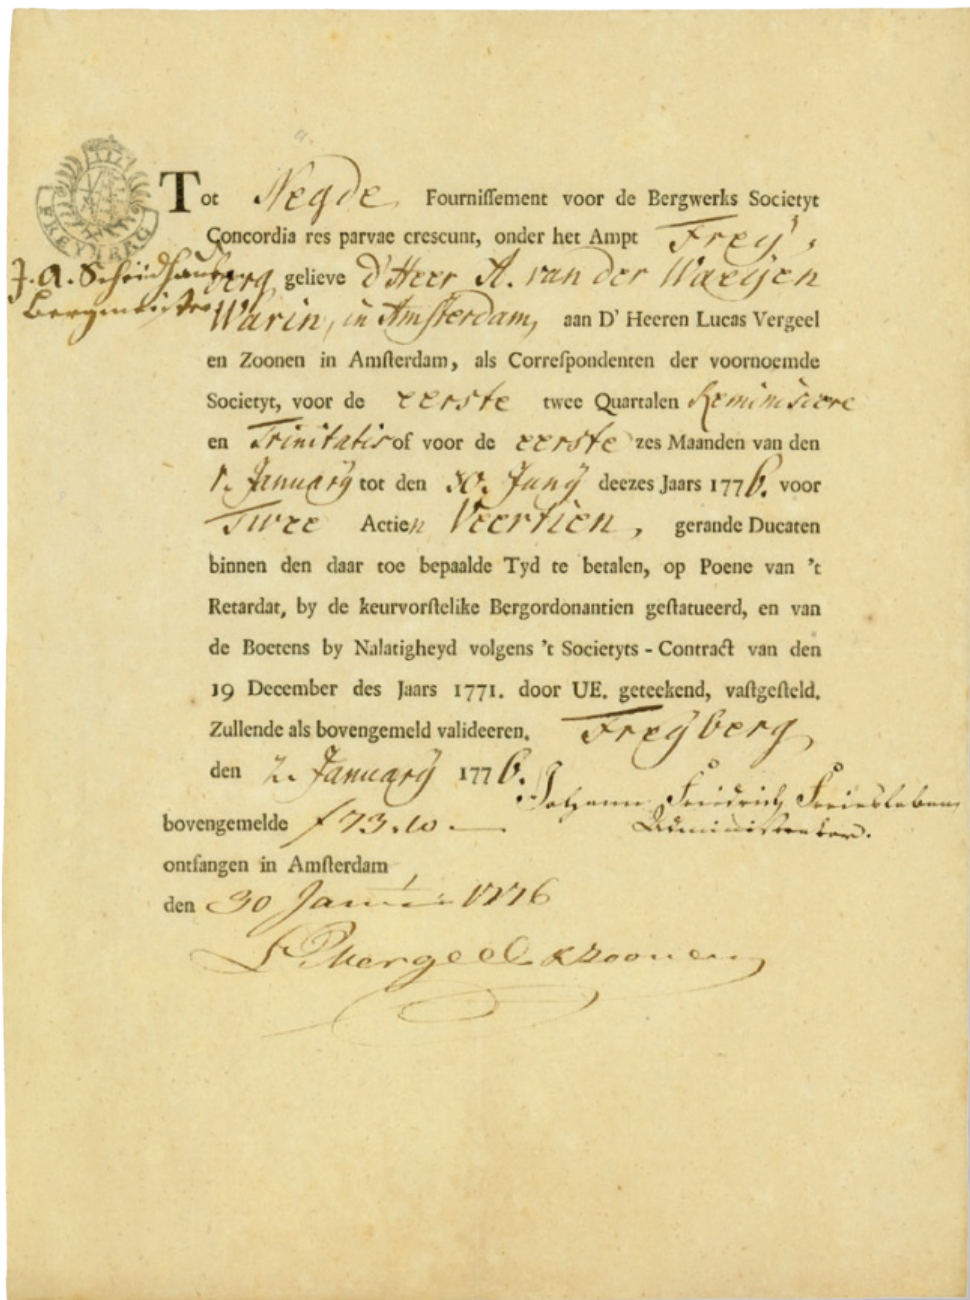 FREYBERG
Tot Negde Fourniſſement voor de Bergwerks Societyt
Concordia res parvae crescunt, onder het Ampt Freÿ,
J. A. Scheidhauer
berg gelieve d'Heer A. van der Waeÿen
Bergmeister
Warin, in Amsterdam, aan D' Heeren Lucas Vergeel
en Zoonen in Amſterdam, als Correſpondenten der voornoemde
Societyt, voor de eerste twee Quartalen Reminiscere
en Trinitatis of voor de eerste zes Maanden van den
1. Januarÿ tot den 30. Junÿ deezes Jaars 1776. voor
Twee Actien Veertien, gerande Ducaten
binnen den daar toe bepaalde Tyd te betalen, op Poene van 't
Retardat, by de keurvorſtelike Bergordonantien geſtatueerd, en van
de Boetens by Nalatigheyd volgens 't Societyts - Contract van den
19 December des Jaars 1771. door UE. geteekend, vaſtgeſteld.
Zullende als bovengemeld valideeren. Freÿberg,
den 2. Januarÿ 1776.
Johann Friedrich Freiesleben
bovengemelde f 73.10.—
Administrator.
ontfangen in Amſterdam
den 30 Januari 1776
L. Vergeel & Zoonen